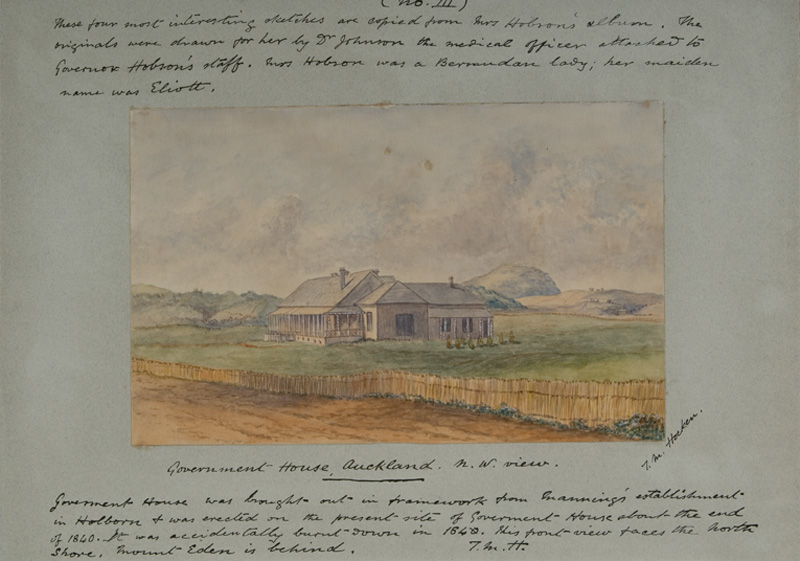 (No. III)
These four most interesting sketches are copied from Mrs Hobson's album. The
originals were drawn for her by Dr Johnson the medical officer attached to
Governor Hobson's staff. Mrs Hobson was a Bermudan lady; her maiden
name was Eliott.
T. M. Hocken.
Government House, Auckland. N.W. view.
Goverment House was brought out in framework from Manning's establishment
in Holborn & was erected on the present site of Goverment House about the end
of 1840. It was accidentally burnt down in 1848. This front view faces the North
Shore. Mount Eden is behind. T.M.H.